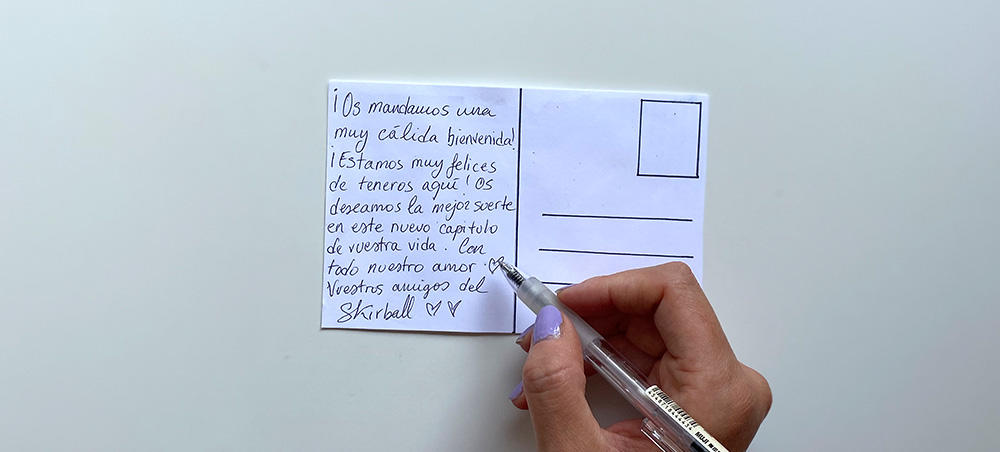 ¡Os mandamos una
muy cálida bienvenida!
¡Estamos muy felices
de teneros aquí! Os
deseamos la mejor suerte
en este nuevo capitulo
de vuestra vida. Con
todo nuestro amor. ♡
Vuestros amigos del
Skirball ♡ ♡